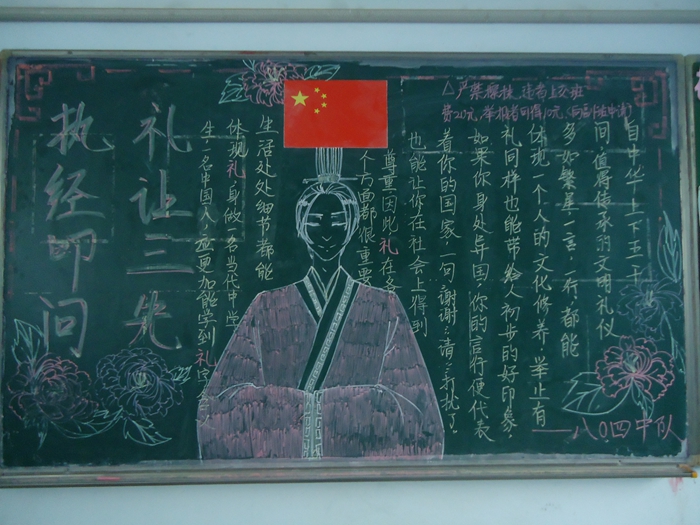 △严禁擦挂,违者上交班
费20元,举报者可得10元
自中华上下五千
间,值得传承的文明礼仪
多如繁星,一言,一行,都能
体现一个人的文化修养,举止有
礼同样也能带给人初步的好印象,
如果你身处异国,你的言行便代表
着你的国家,一句“谢谢”“请”“打扰了”
也能让你在社会上得到
尊重因此礼在各
个方面都很重要
生活处处细节都能
体现礼,身做一名当代中学
生,一名中国人,应更加能学到礼
——八〇四中队
礼让三先
执经叩问